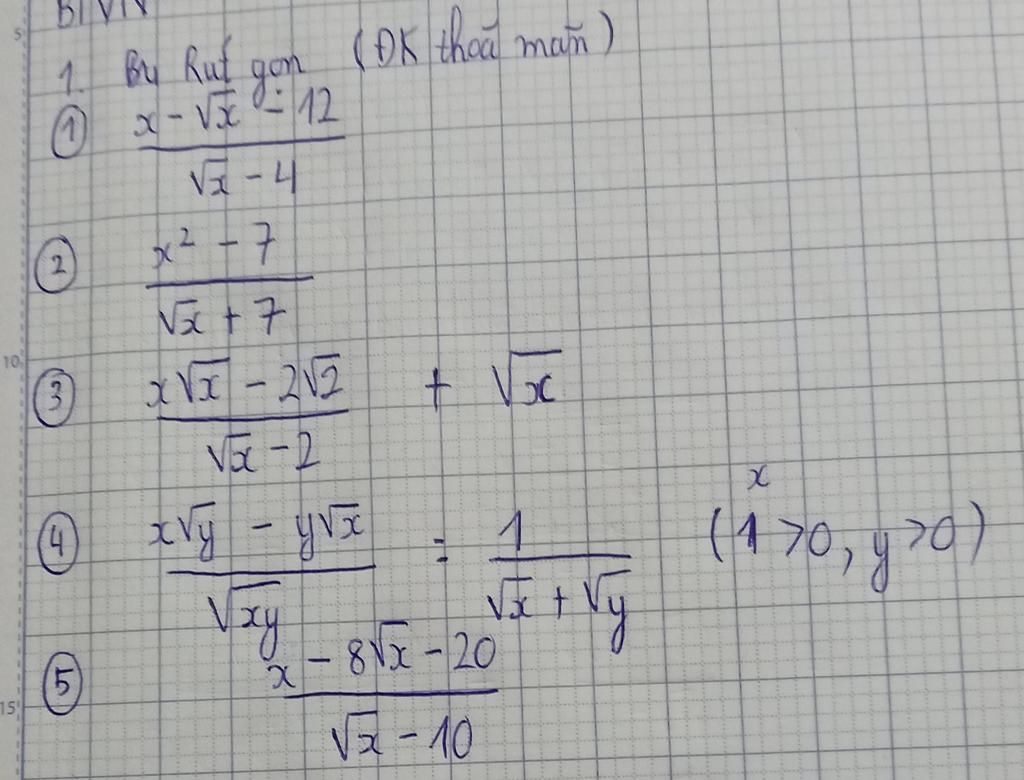 1. Rút gọn (ĐK thoã mãn)
① (x - √x - 12) / (√x - 4)
② (x² - 7) / (√x + 7)
③ (x√x - 2√2) / (√x - 2) + √x
④ (x√y - y√x) / √xy : 1 / (√x + √y) (x > 0, y > 0)
⑤ (x - 8√x - 20) / (√x - 10)
5
10
15